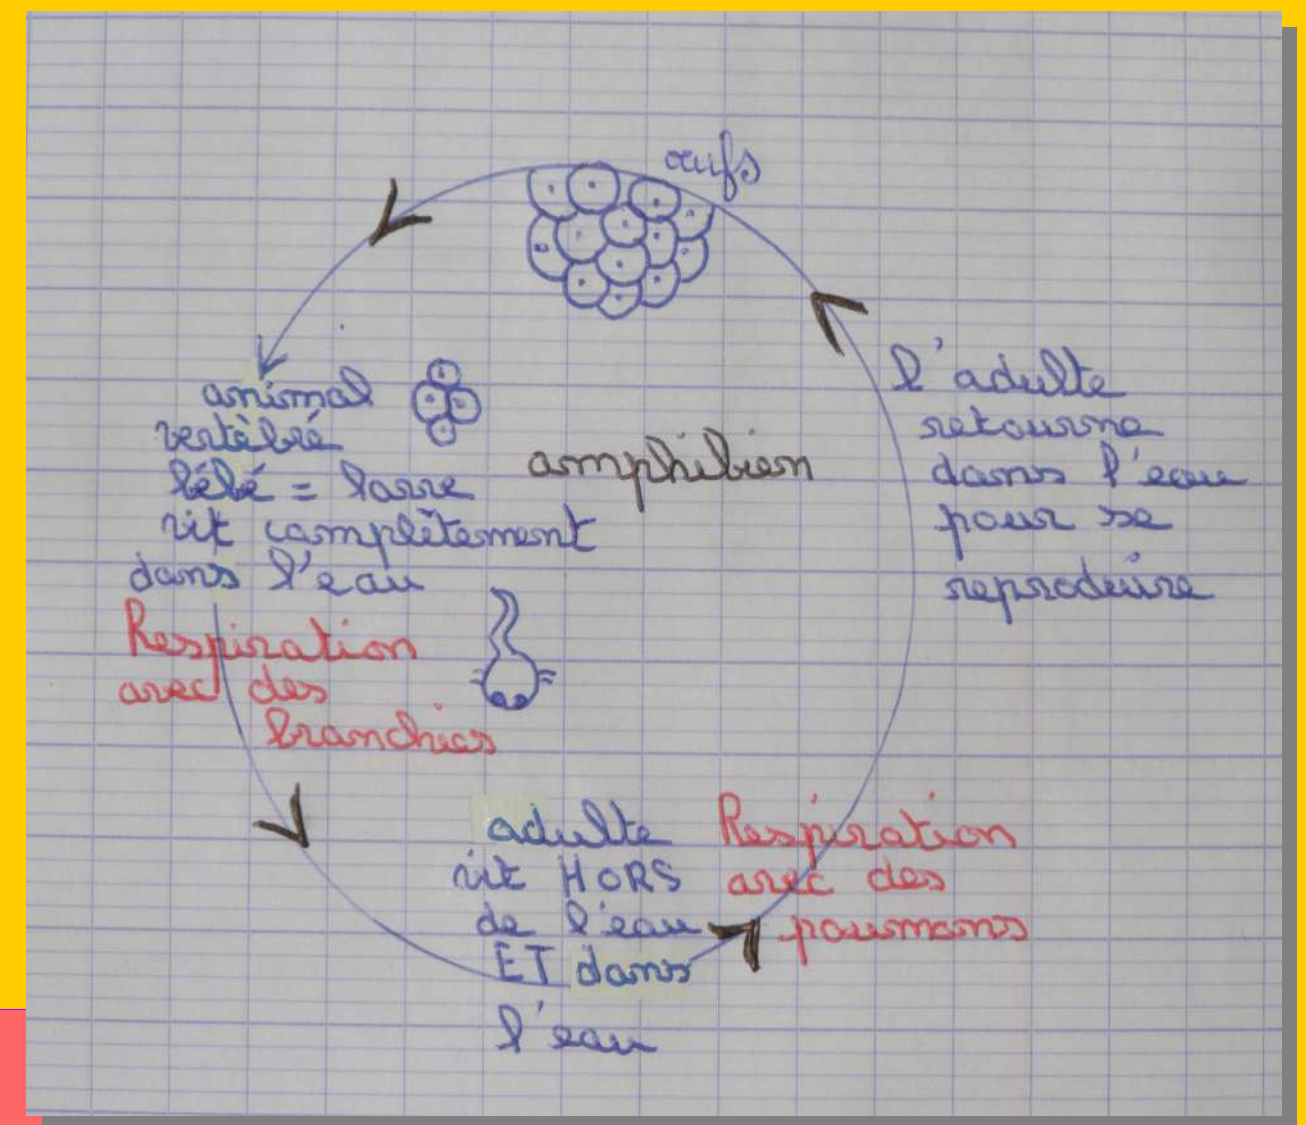 œufs
animal
vertèbré
bébé = larve
vit complètement
dans l'eau
Respiration
avec des
branchies
amphibien
l'adulte
retourne
dans l'eau
pour se
reproduire
adulte
vit HORS
de l'eau
ET dans
l'eau
Respiration
avec des
poumons